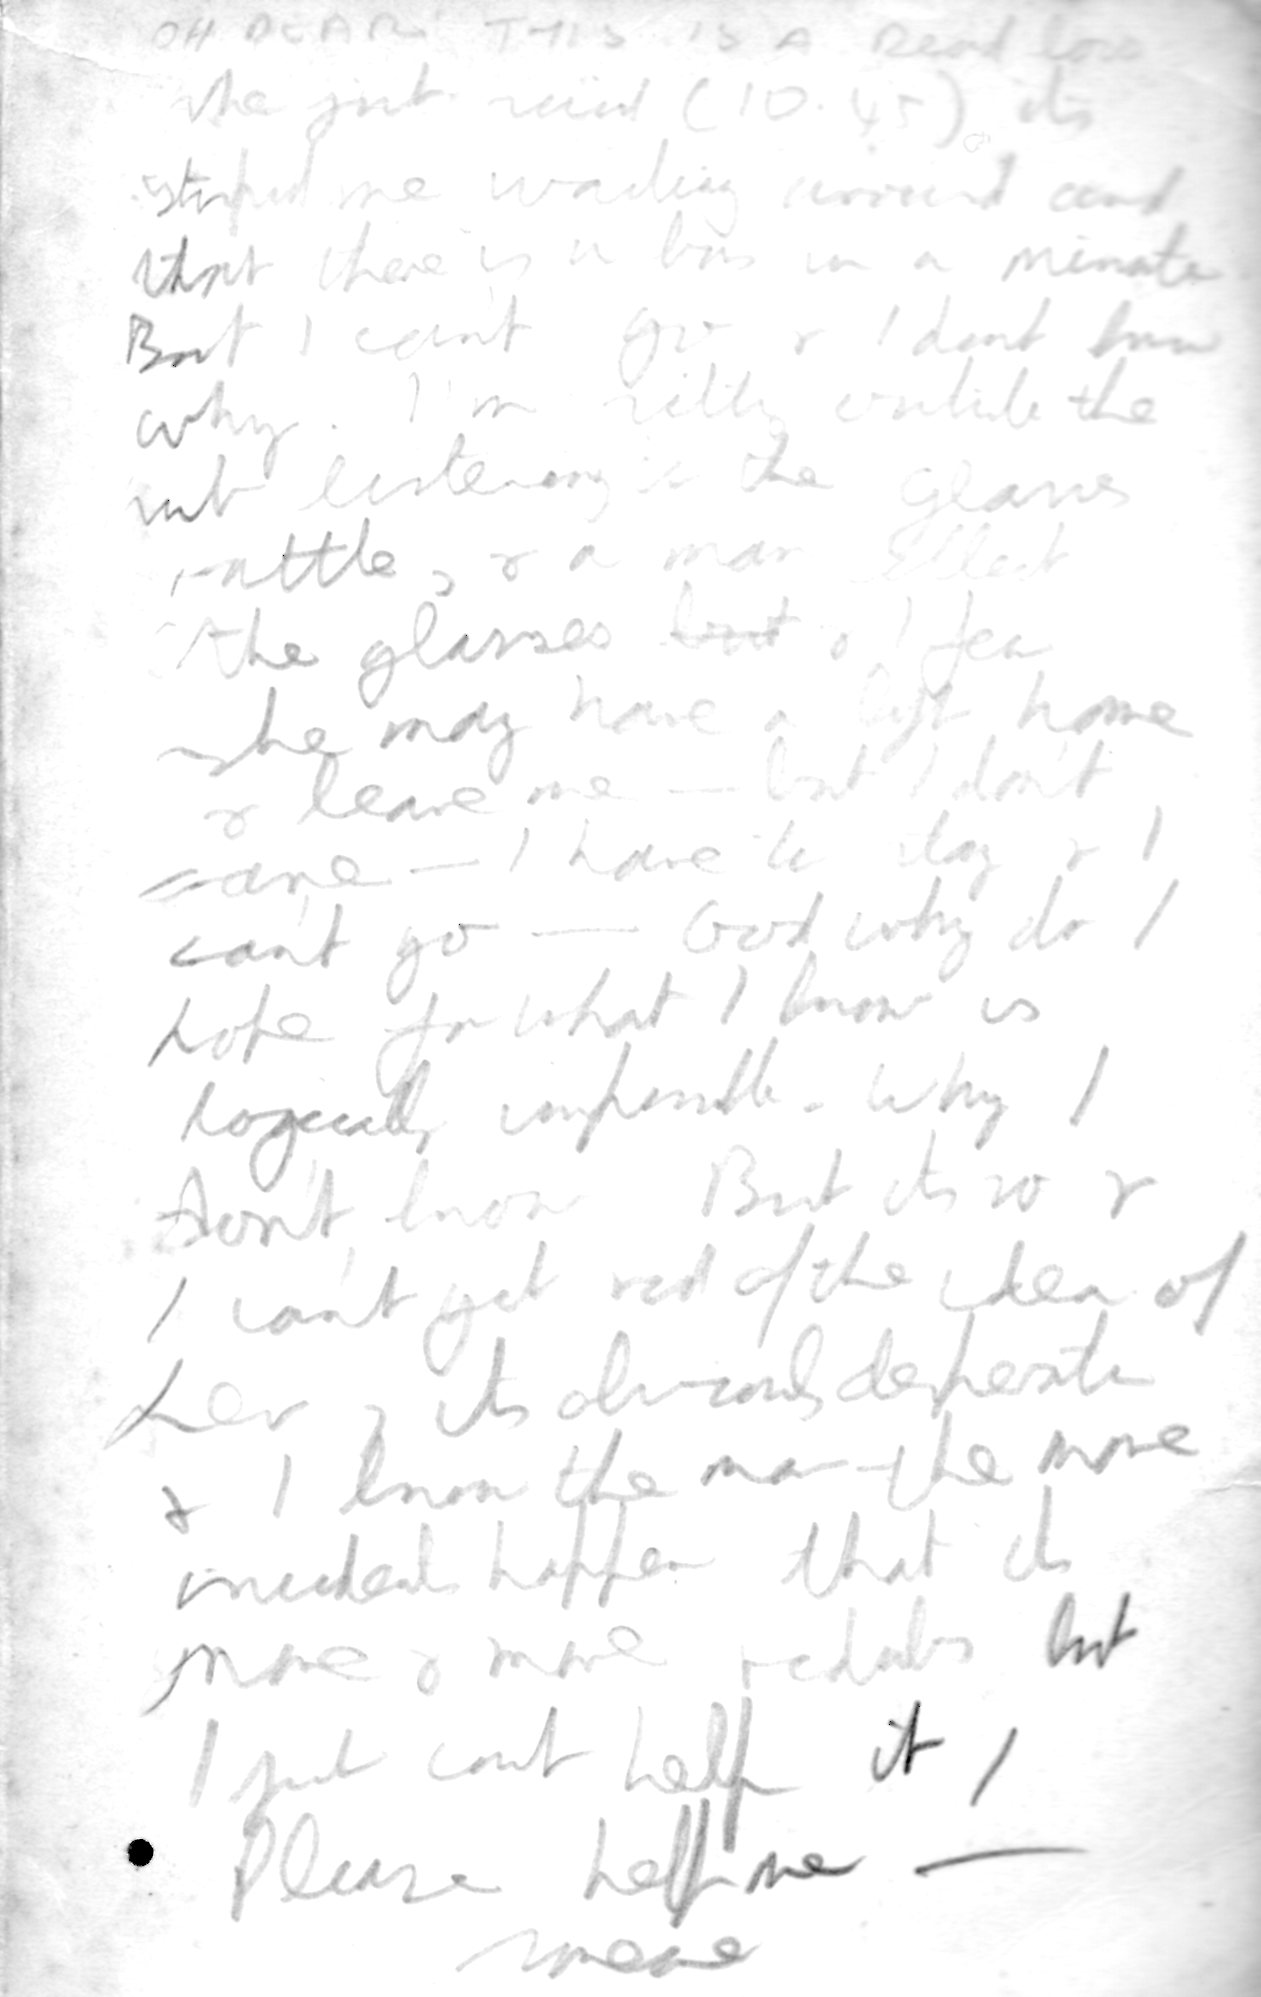 OH DEAR! THIS IS A Read low
She just said (10.45) its
stupid me wading around and
that there is a bus in a minute
But I can't go & I dont know
why. I'm sitting outside the
pub listening to the glasses
rattle, & a man collect
the glasses but & I fear
she may have a lift home
& leave me — but I don't
care — I have to stay & I
can't go — God why do I
hope for what I know is
logically impossible. Why I
don't know But its so &
I can't get rid of the idea of
her, its obviously desperate
& I know the more the more
incidents happen that its
more & more but
I just cant help it /
Please help me —
someone